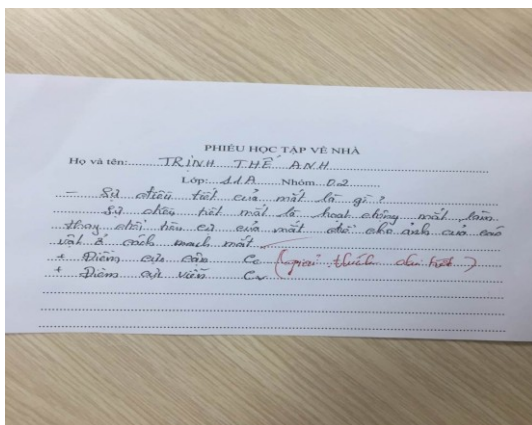 PHIẾU HỌC TẬP VỀ NHÀ
Họ và tên: TRỊNH THẾ ANH
Lớp: 11A Nhóm 02
- Sự điều tiết của mắt là gì?
Sự điều tiết mắt là hoạt động mắt làm
thay đổi tiêu cự của mắt để cho ảnh của các
vật ở cách mạch mắt
+ Điểm cực cận Cc (giải thích chi tiết)
+ Điểm cực viễn Cv